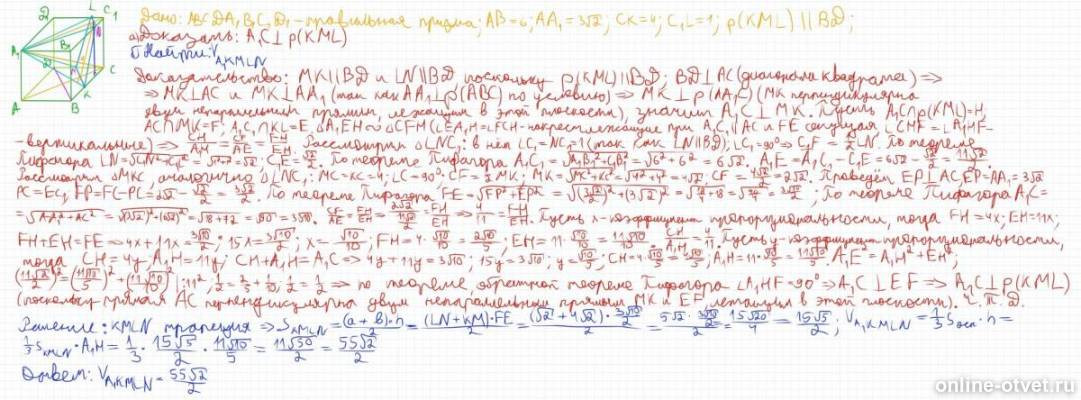 Дано: ABCDA₁B₁C₁D₁ - правильная призма; AB=6; AA₁=3√2; CK=4; C₁L=1; p(KML) || BD;
а) Доказать: A₁C⊥p(KML)
б) Найти: V A₁KMLN
Доказательство: MK||BD и LN||BD поскольку p(KML)||BD; BD⊥AC (диагонали квадрата) ⇒
⇒ MK⊥AC и MK⊥AA₁ (так как AA₁⊥p(ABC) по условию) ⇒ MK⊥p(AA₁C) (MK перпендикулярна
двум непараллельным прямым, лежащим в этой плоскости), значит A₁C⊥MK. Пусть A₁C∩p(KML)=H,
AC∩MK=F; A₁C₁∩KL=E. △A₁EH∼△CFH (∠EA₁H=∠FCH - накрест лежащие при A₁C₁||AC и FE секущая, ∠CHF=∠A₁HE -
- вертикальные) ⇒ CF/A₁E=CH/A₁H=FH/EH. Рассмотрим △LNC₁: в нём LC₁=NC₁=1 (так как LN||BD); ∠C₁=90° ⇒ C₁E=1/2 LN. По теореме
Пифагора LN=√(C₁N²+C₁L²)=√(1²+1²)=√2; C₁E=√2/2. По теореме Пифагора A₁C₁=√(A₁B₁²+C₁B₁²)=√(6²+6²)=6√2. A₁E=A₁C₁-C₁E=6√2-√2/2=11√2/2.
Рассмотрим △MKC, аналогично △LNC₁: MC=KC=4; ∠C=90°; CF=1/2 MK; MK=√(MC²+KC²)=√(4²+4²)=4√2; CF=4√2/2=2√2. Проведём EP⊥AC, EP=AA₁=3√2
PC=EC₁, FP=FC-PC=2√2-√2/2=3√2/2. По теореме Пифагора FE=√(FP²+EP²)=
По теореме Пифагора A₁C=
=√(AA₁²+AC²)=√((3√2)²+(6√2)²)=√(18+72)=√90=3√10.
Пусть x - коэффициент пропорциональности, тогда FH=4x; EH=11x;
FH+EH=FE ⇒ 4x+11x=3√10/2; 15x=3√10/2; x=√10/10; FH=4·√10/10=2√10/5; EH=11·√10/10=11√10/10. CH/A₁H=4/11. Пусть y - коэффициент пропорциональности,
тогда CH=4y; A₁H=11y; CH+A₁H=A₁C ⇒ 4y+11y=3√10; 15y=3√10; y=√10/5; CH=4·√10/5=4√10/5; A₁H=11·√10/5=11√10/5. A₁E²=A₁H²+EH²;
(11√2/2)²=(11√10/5)²+(11√10/10)² |:11²; 1/2=2/5+1/10; 1/2=1/2 ⇒ по теореме, обратной теореме Пифагора ∠A₁HE=90° ⇒ A₁C⊥EF ⇒ A₁C⊥p(KML)
(поскольку прямая AC перпендикулярна двум непараллельным прямым MK и EF, лежащим в этой плоскости). Ч.Т.Д.
Решение: KMLN трапеция ⇒ S KMLN=(a+b)·h/2=(LN+KM)·FE/2=(√2+4√2)·3√10/2/2=5√2·3√10/2/2=15√20/4=15√5/2; V A₁KMLN=1/3 Sосн·h=
1/3 S KMLN·A₁H=1/3·15√5/2·11√10/5=11√50/2=55√2/2
Ответ: V A₁KMLN=55√2/2
online-otvet.ru